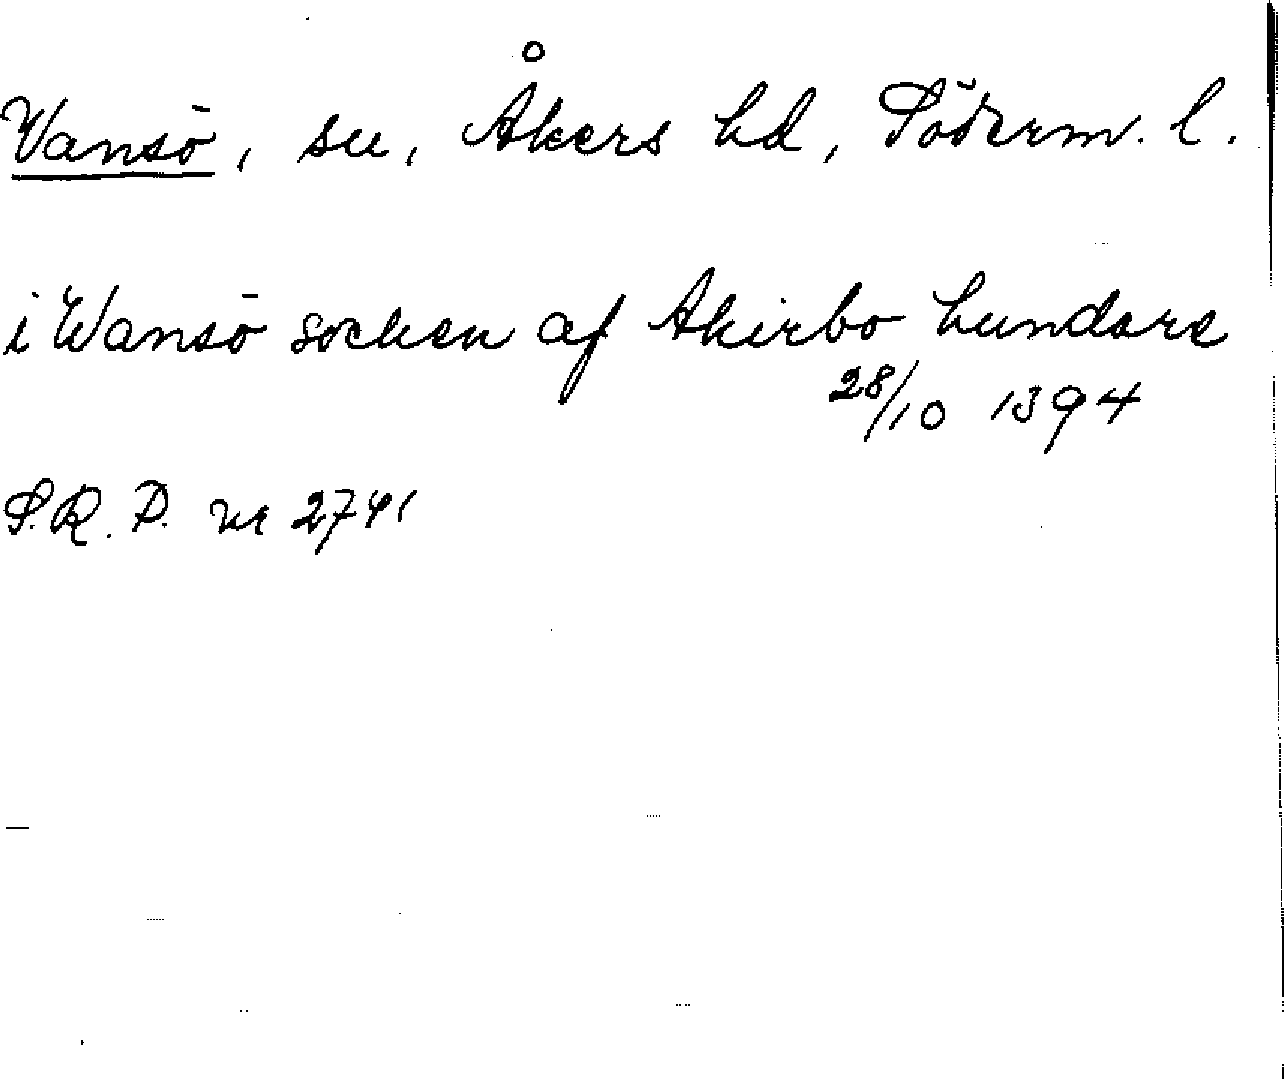 Vansö, sn, Åkers hd, Söderm. l.
i Wansö socken af Akirbo hundare
28/10 1394
S.R.P. nr 2741